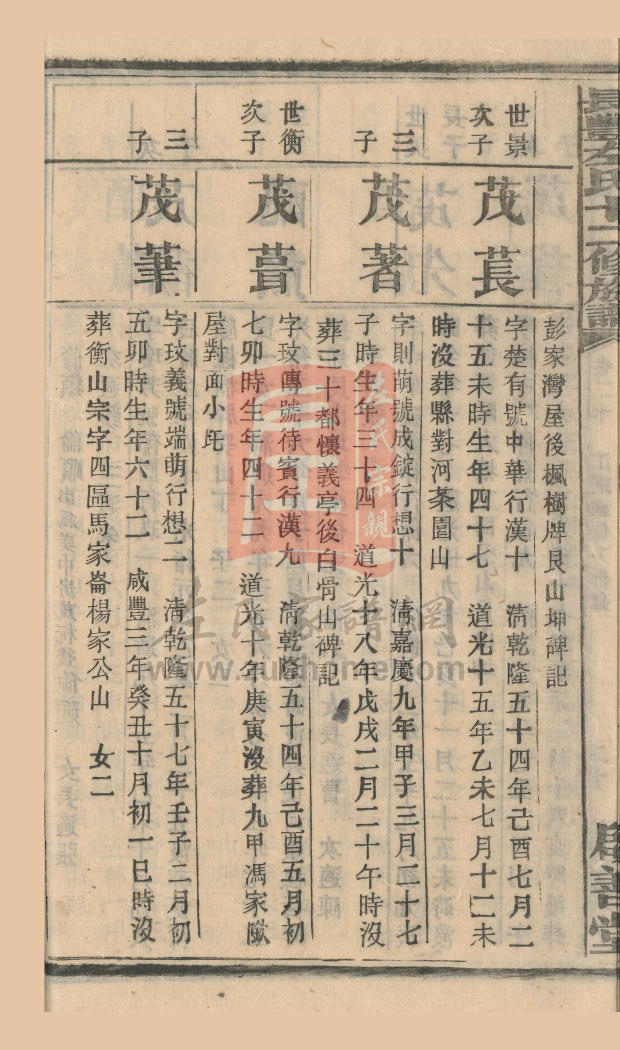 長豐左氏十二修族譜
啟善堂
彭家灣屋後楓樹牌艮山坤碑記
世景
次子
茂萇
字楚有號中華行漢十 清乾隆五十四年己酉七月二
十五未時生年四十七 道光十五年乙未七月十二未
時沒葬縣對河茶園山
三
子
茂著
字則萌號成錠行想十 清嘉慶九年甲子三月二十七
子時生年三十四 道光十八年戊戌二月二十午時沒
葬三十都懷義亭後白骨山碑記
世衡
次子
茂葺
字玟傳號待賓行漢九 清乾隆五十四年己酉五月初
七卯時生年四十二 道光十年庚寅沒葬九甲馮家
屋對面小
三
子
茂華
字玟義號端萌行想二 清乾隆五十七年壬子二月初
五卯時生年六十二 咸豐三年癸丑十月初一巳時沒
葬衡山宗字四區馬家崙楊家公山 女二
左氏宗親
左氏家譜網